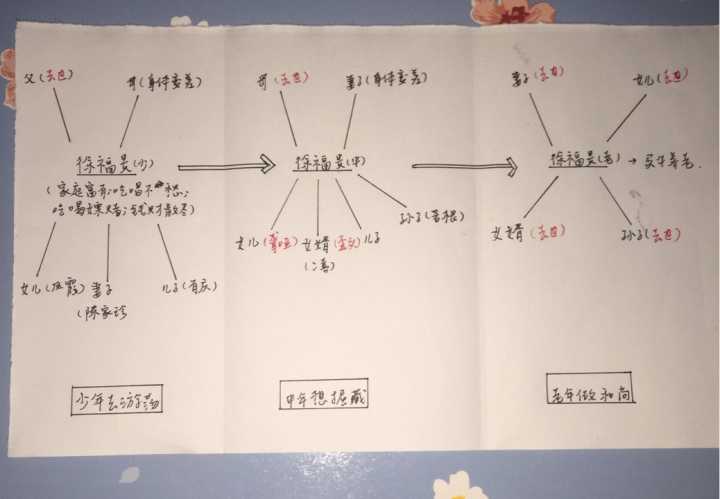 父(去世)
母(身体变差)
徐福贵(少)
(家庭富有;吃喝不愁;
吃喝嫖赌;钱财散尽)
女儿(凤霞)
妻子
(陈家珍
儿子(有庆)
少年去游荡
母(去世)
妻子(身体变差)
徐福贵(中)
女儿(聋哑)
女婿(歪头)
(二喜)
儿子
孙子(苦根)
中年想掘藏
妻子(去世)
女儿(去世)
徐福贵(老)→买牛养老.
女婿(去世)
孙子(去世)
老年做和尚